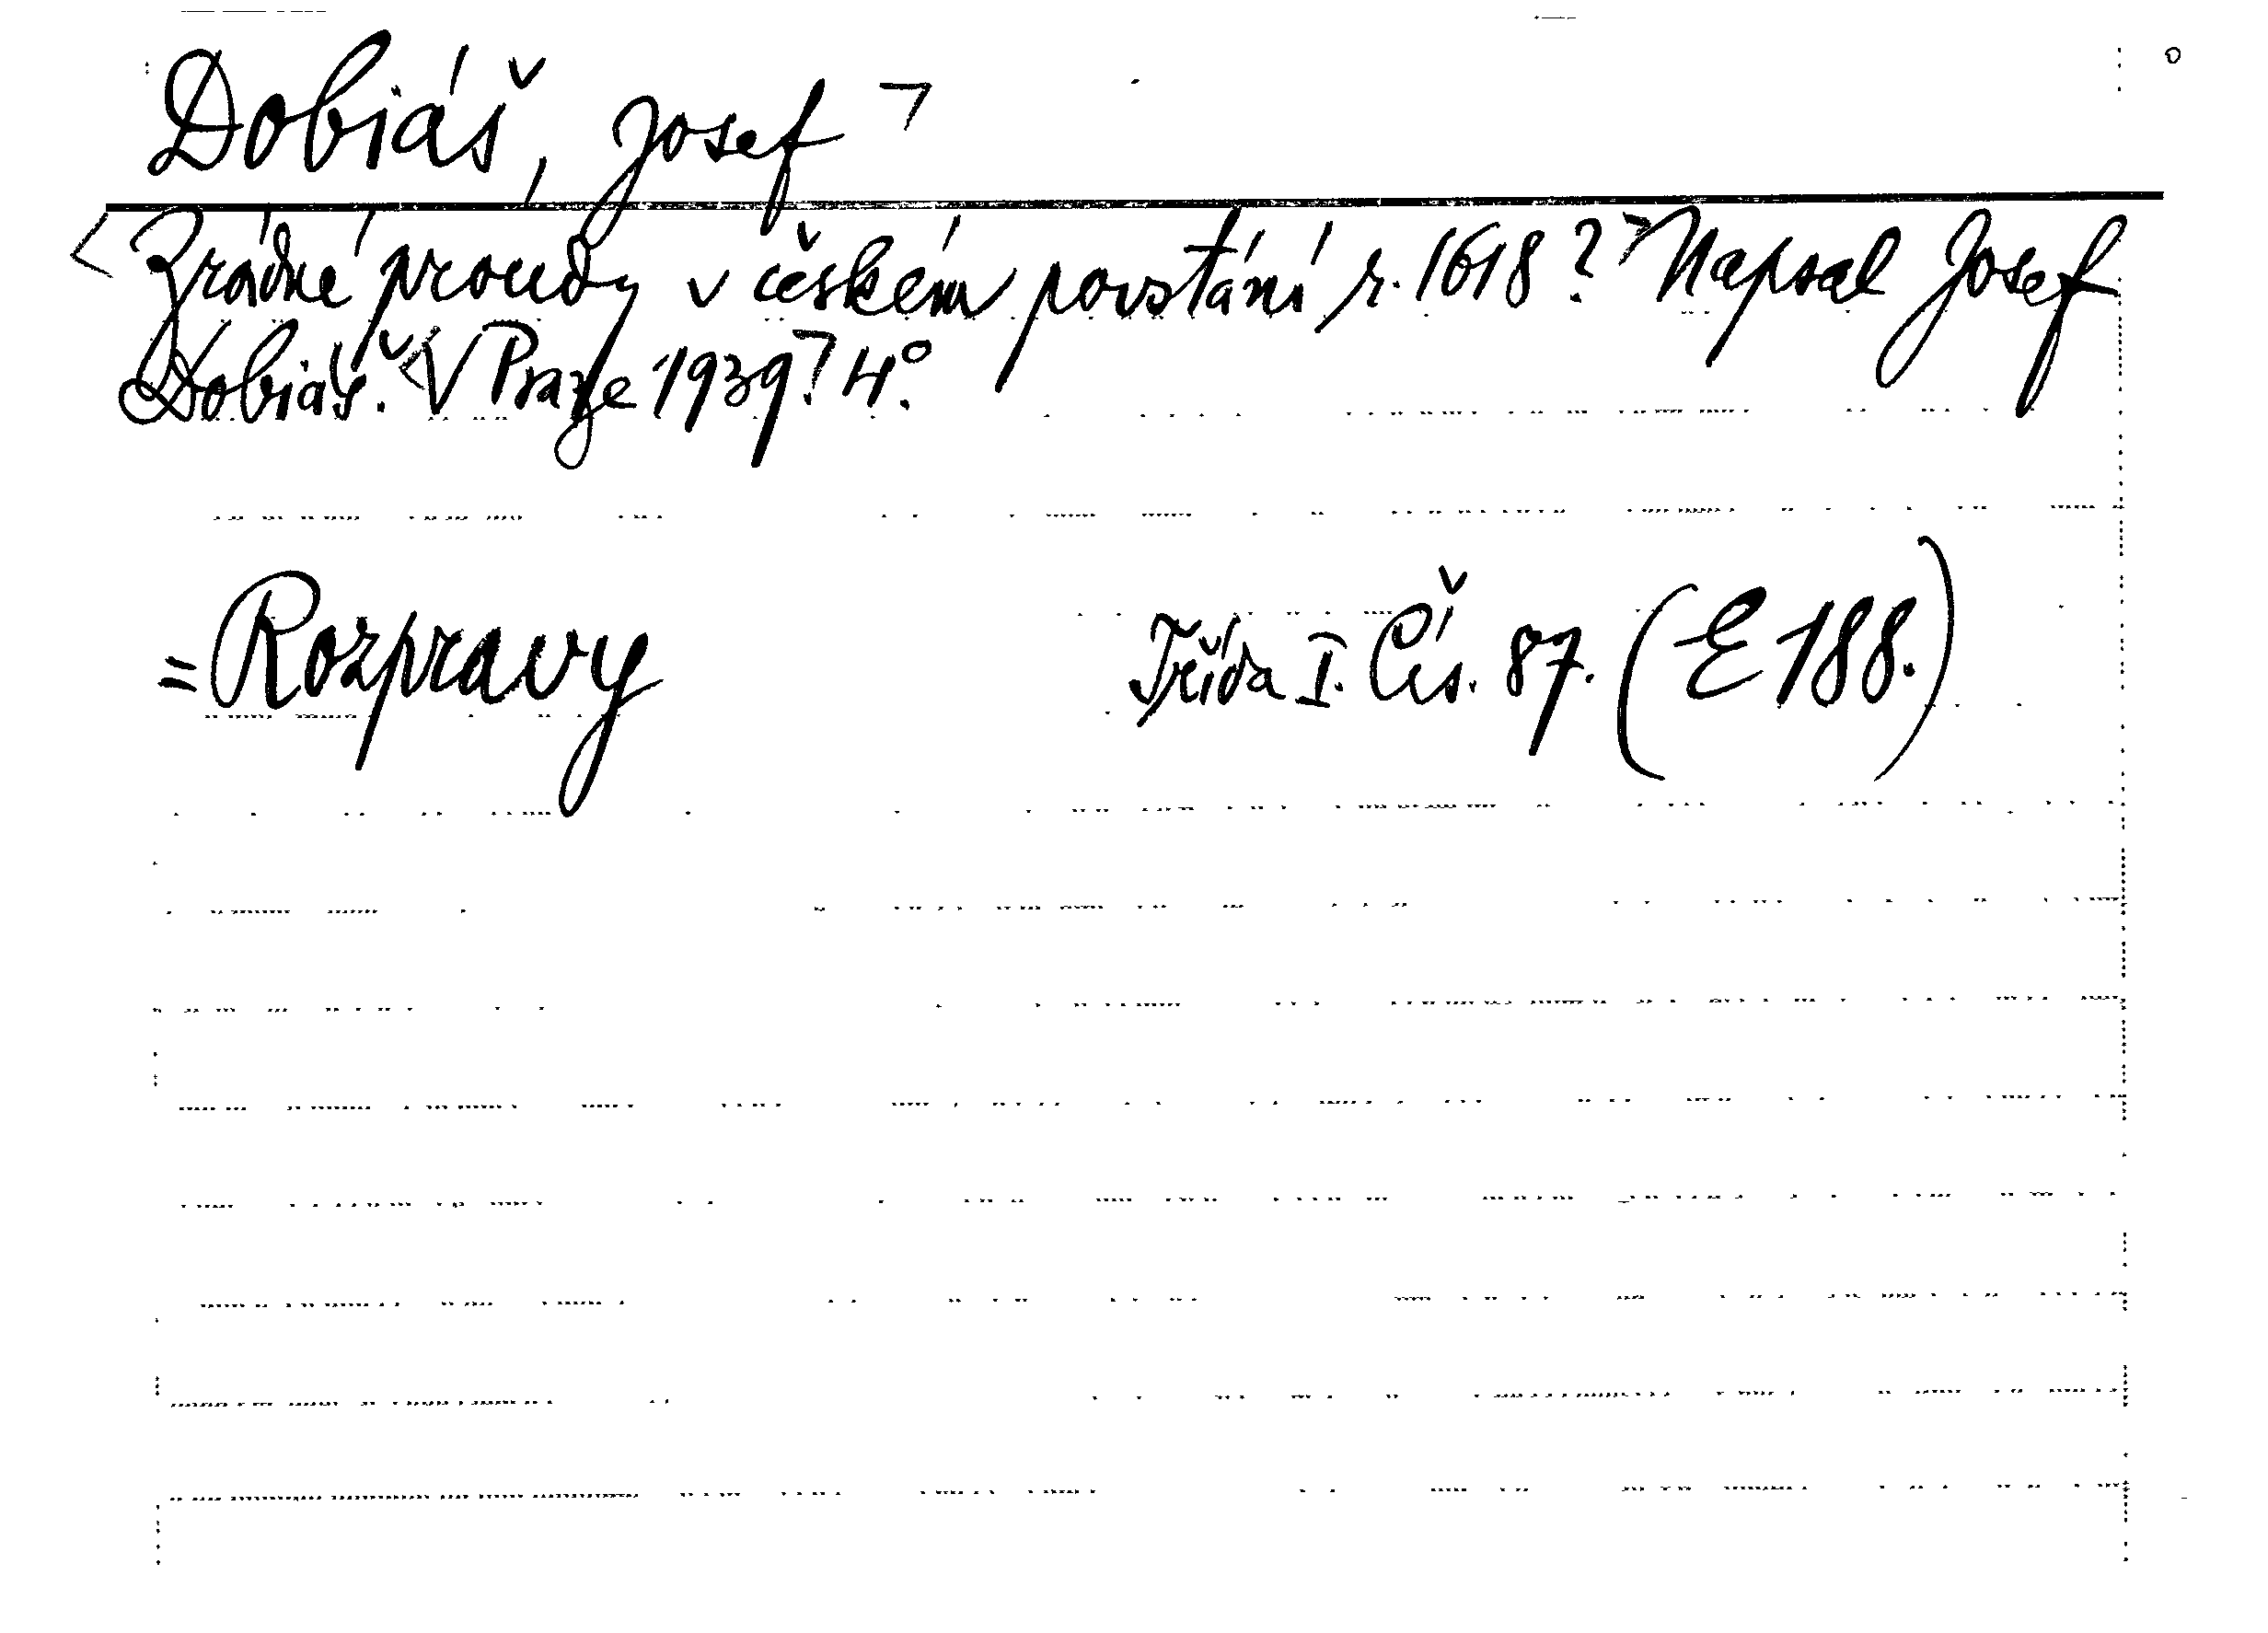 Dobiáš, Josef ⌝
<Zrádné proudy v českém povstání r. 1618? > Napsal Josef
Dobiáš. <V Praze 1939.⌝ 4°.
= Rozpravy Třída I. Čís. 87. (E 188.)